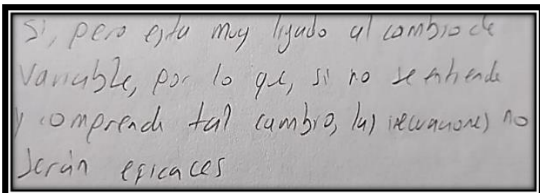 Si, pero esta muy ligado al cambio de
variable, por lo que, si no se entiende
y comprende tal cambio, las inecuaciones no
serán eficaces